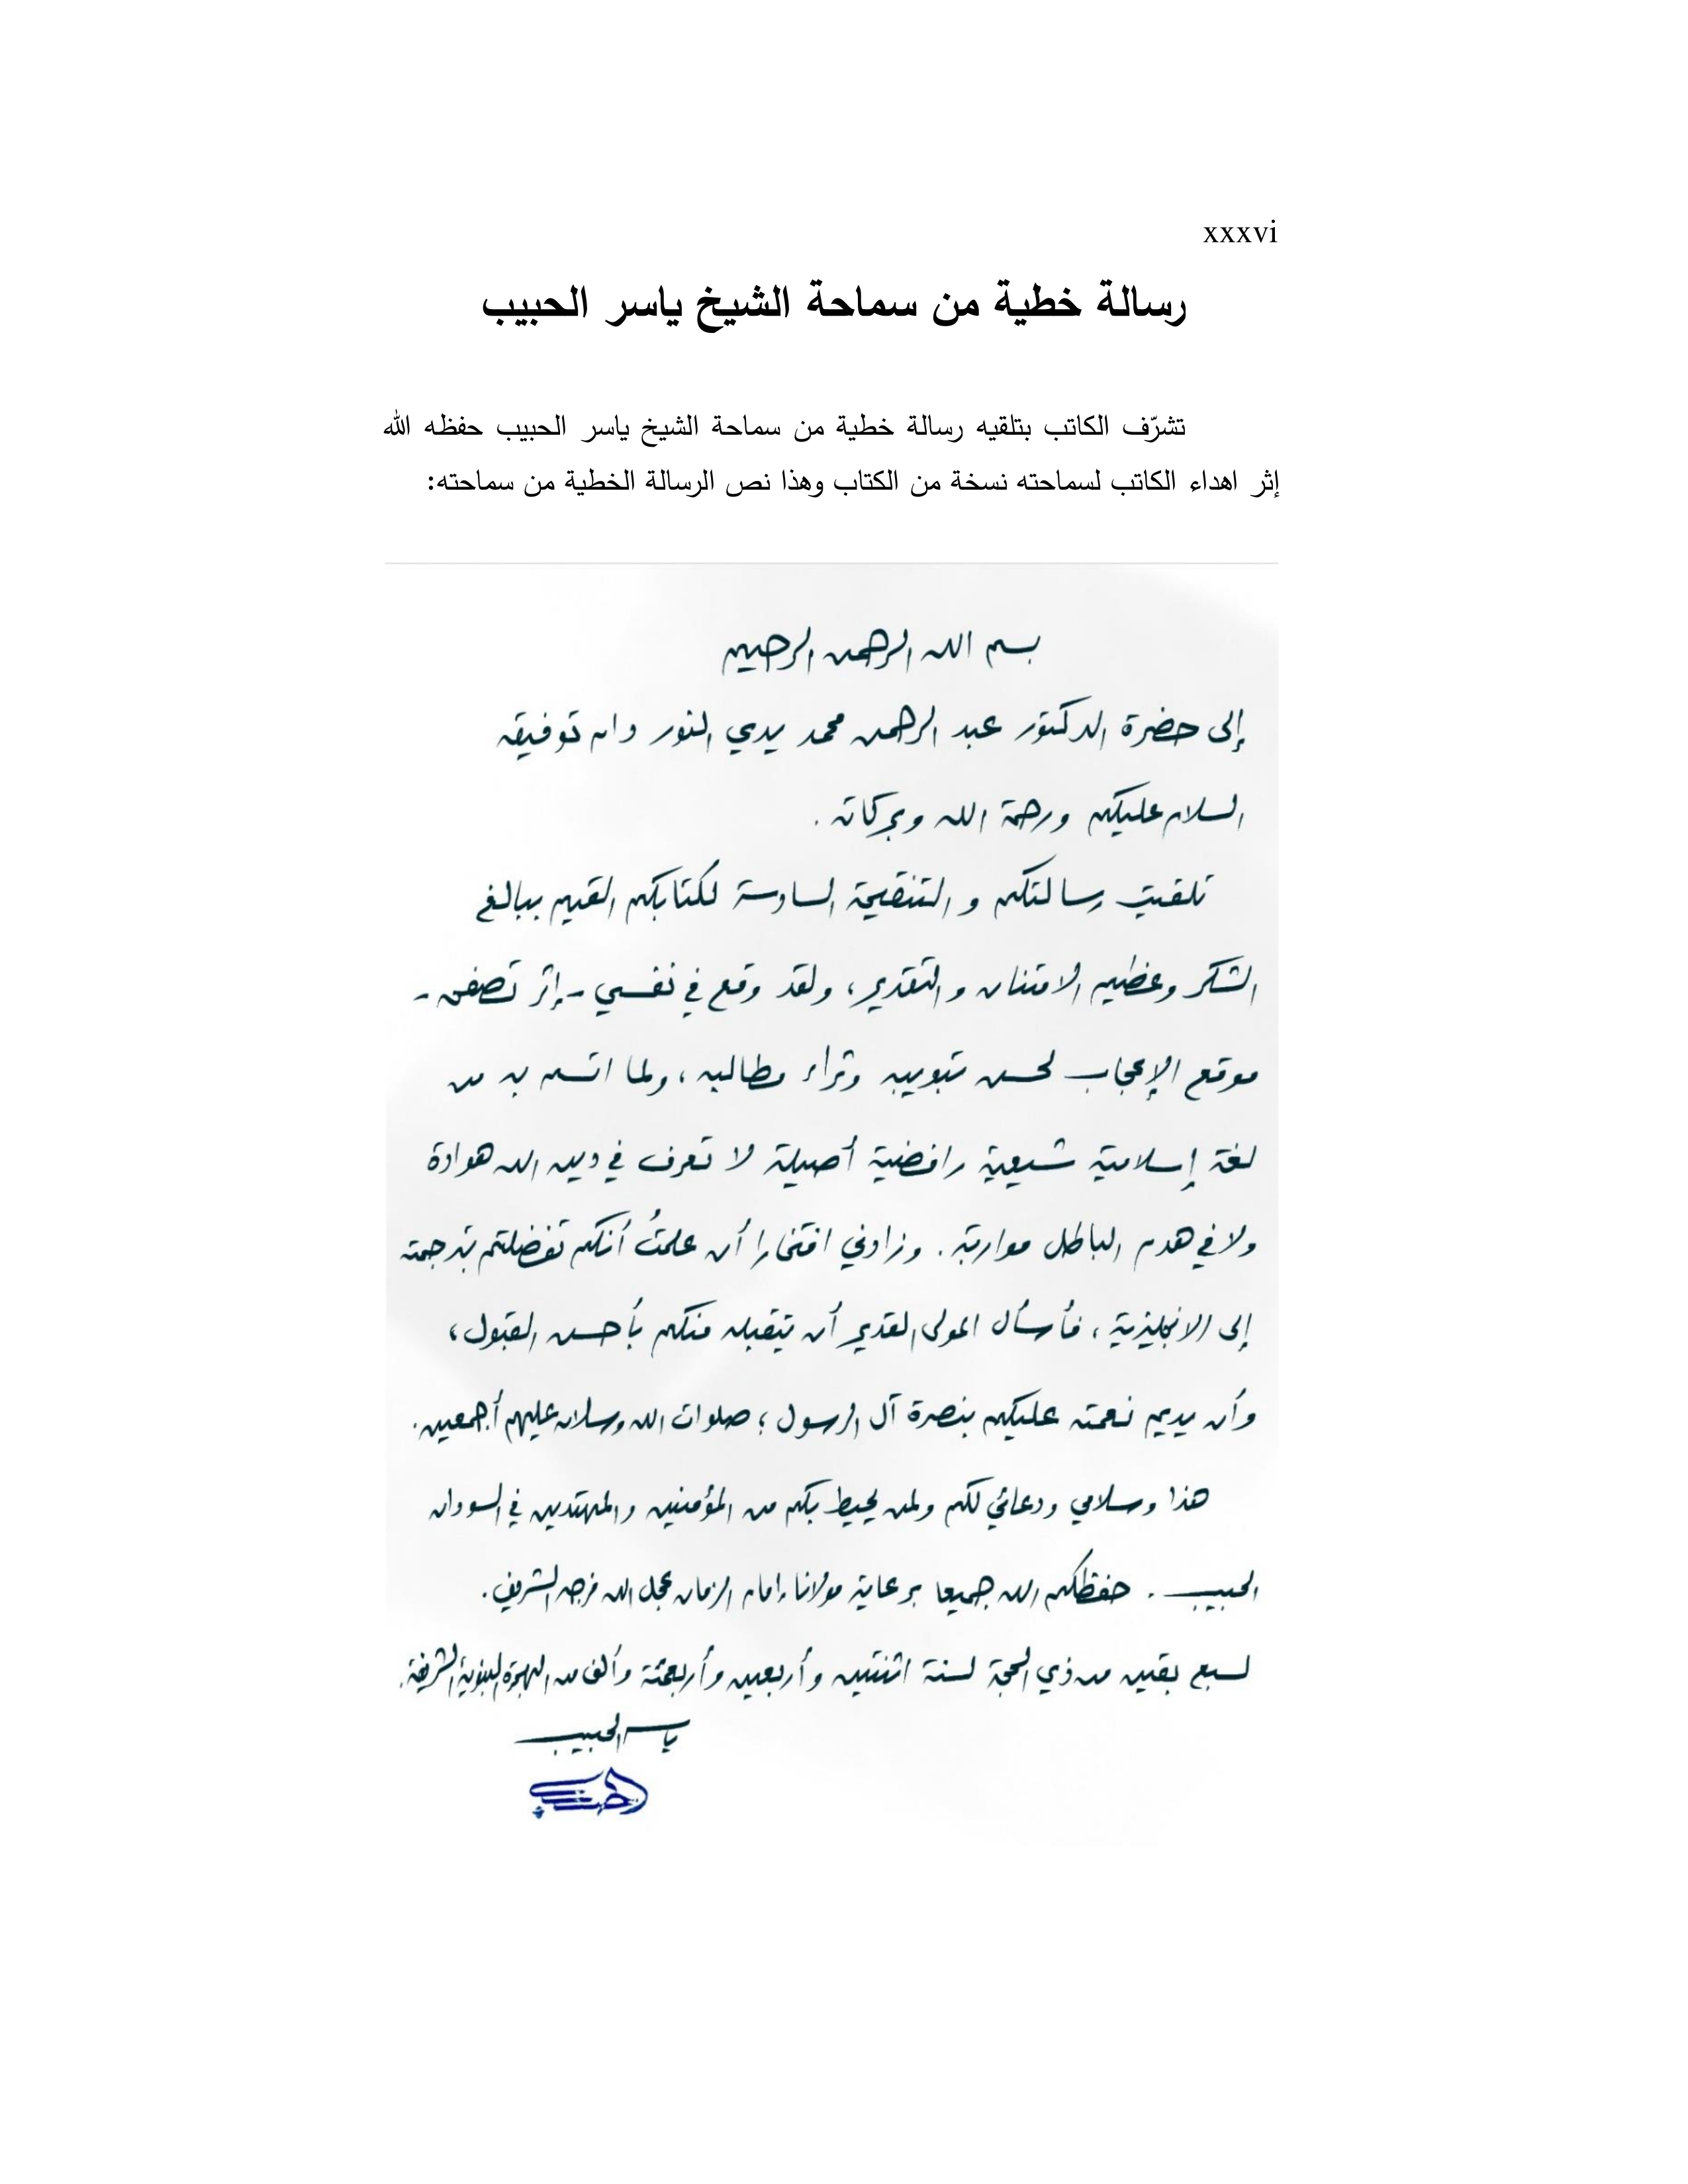 xxxvi
رسالة خطية من سماحة الشيخ ياسر الحبيب
تشرّف الكاتب بتلقيه رسالة خطية من سماحة الشيخ ياسر الحبيب حفظه الله
إثر اهداء الكاتب لسماحته نسخة من الكتاب وهذا نص الرسالة الخطية من سماحته:
بسم الله الرحمن الرحيم
إلى حضرة الدكتور عبد الرحمن محمد يدي النور دام توفيقه
السلام عليكم ورحمة الله وبركاته .
تلقيت رسالتكم و التنقيحة السادسة لكتابكم القيم ببالغ
الشكر وعظيم الامتنان والتقدير، ولقد وقع في نفسي - إثر تصفحه -
موقع الإعجاب لحسن تبويبه وثراء مطالبه ، ولما اتسم به من
لغة إسلامية شيعية رافضية أصيلة لا تعرف في دين الله هوادة
ولا في هدم الباطل مواربة . وزادني افتخارا أن علمتُ أنكم تفضلتم بترجمته
إلى الانجليزية ، فأسأل المولى القدير أن يتقبله منكم بأحسن القبول ،
وأن يديم نعمته عليكم بنصرة آل الرسول ؛ صلوات الله وسلامه عليهم أجمعين .
هذا وسلامي ودعائي لكم ولمن يحيط بكم من المؤمنين والمهتدين في السودان
الحبيب . حفظكم الله جميعا برعاية مولانا إمام الزمان عجل الله فرجه الشريف .
لسبع بقين من ذي الحجة لسنة اثنتين وأربعين وأربعمئة وألف من الهجرة النبوية الشريفة .
ياسر الحبيب